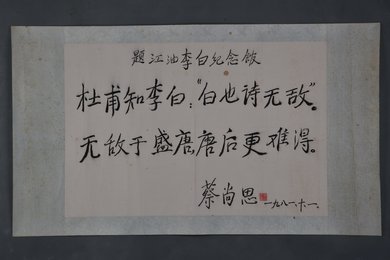 题江油李白纪念馆
杜甫知李白："白也诗无敌"。
无敌于盛唐，唐后更难得。
蔡尚思 一九八一、十一、